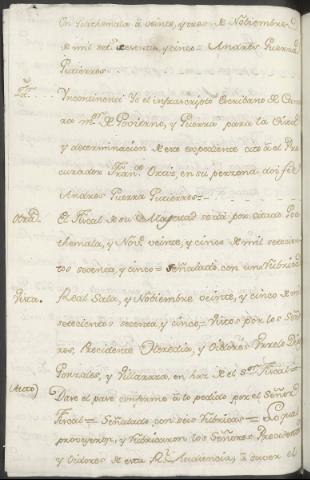 En Guathemala à veinte, y tres de Noviembre
de mil set.s sesenta, y cinco Andres Guerra
Gutierres
Incontinenti Yo el infrascripto Escribano de Cama
ra m.r de Govierno, y Guerra para la Citaz.
y determinacion de este expediente cité à el Pro
curador Fran.co Ortiz, en su persona doi feé
Andres Guerra Gutierres
Otra El Fiscal de su Magestad se dá por citado Gua
themala, y Nov.e veinte, y cinco de mil setecien
tos sesenta, y cinco = Señalado con una rubrica
Vista. Real Sala, y Noviembre veinte, y cinco de mil
setecientos sesenta, y cinco = Vistos por los Seño
res, Presidente Heredia, y Oidores
Gonzales, y Villarrasa, en haz de el s.or Fiscal =
(Auto) Dese el pase conforme à lo pedido por el Señor
Fiscal = Señalado con seis rubricas = Lo qual
proveyeron, y rubricaron los Señores Presidente
y Oidores de esta R.l Audiencia, à suver el